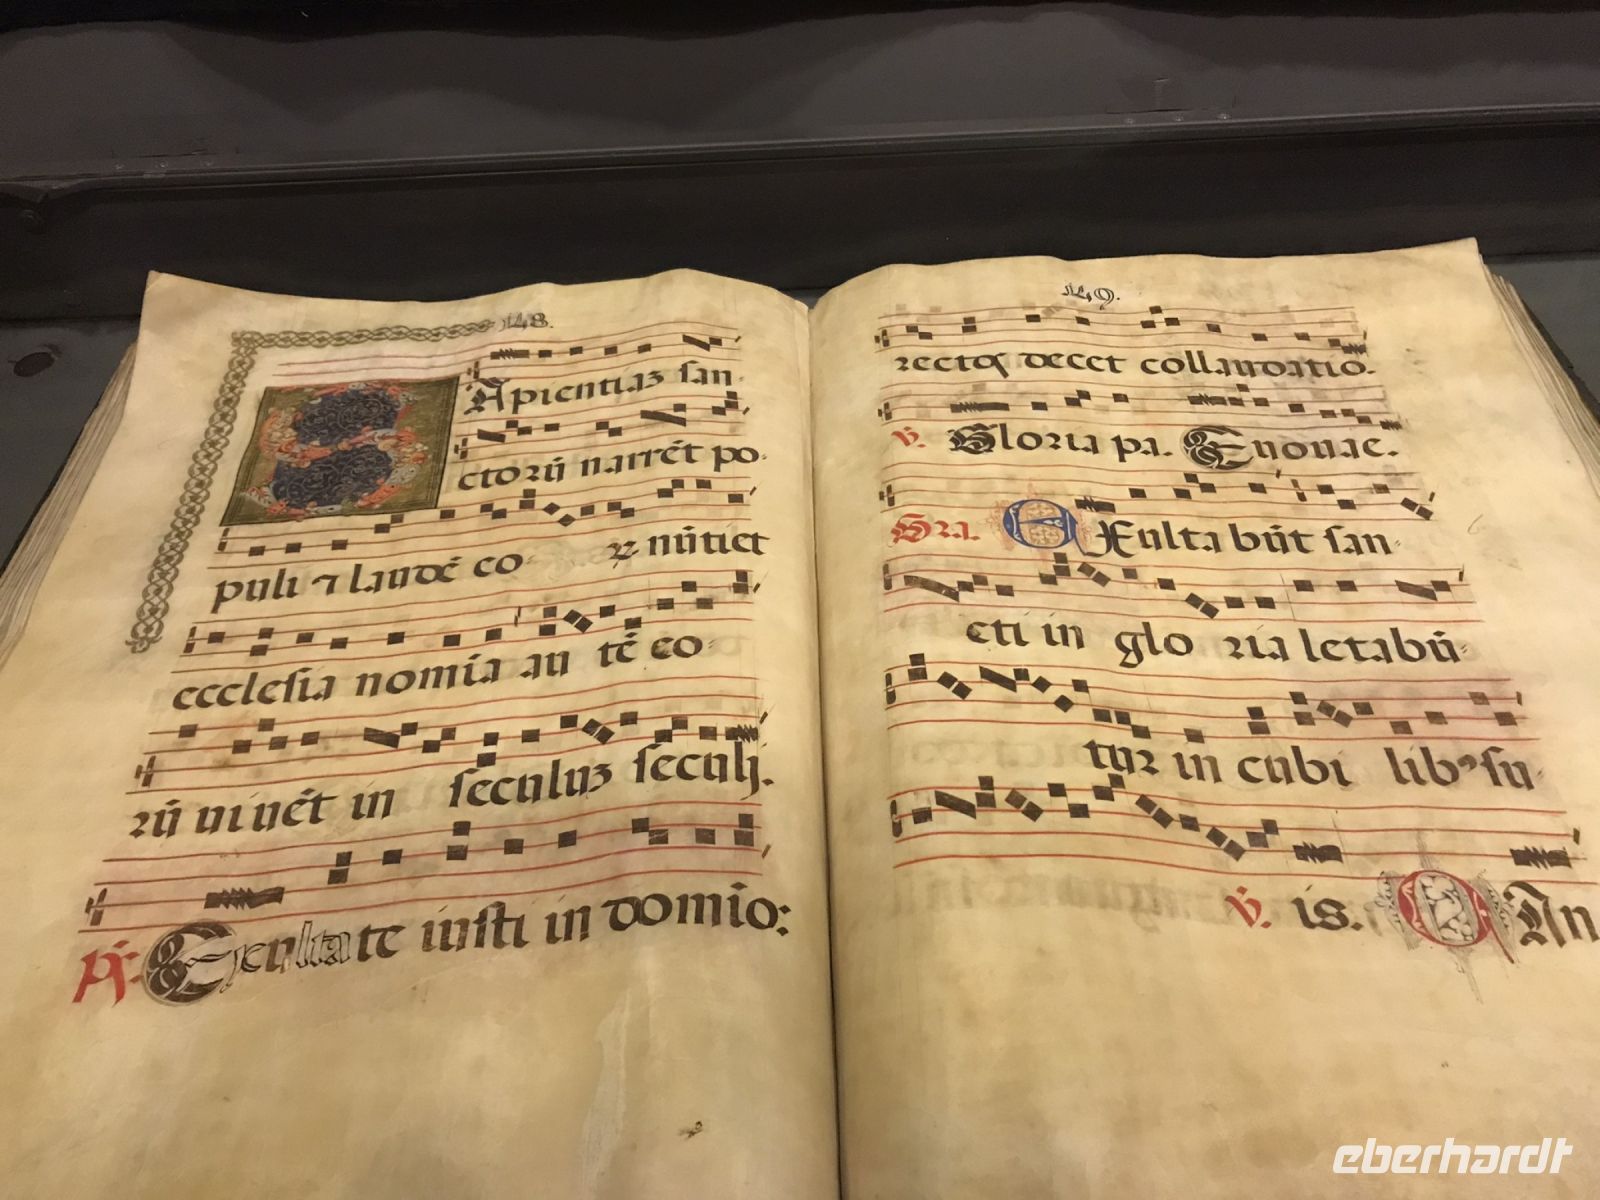 148.
SApientiaȝ san-
ctorū narrēt po-
puli ⁊ laudē co ꝛ nūtiet
ecclesia nomīa au tē eo-
rū uiuēt in seculuȝ seculi.
p̄s: Exultate iusti in domīo:
149.
rectos decet collaudatio.
v̄. Gloria pa. Euouae.
Gra. EXulta būt san-
cti in glo ria letabū-
tur in cubi libꝰ su-
v̄. is. CAn
eberhardt